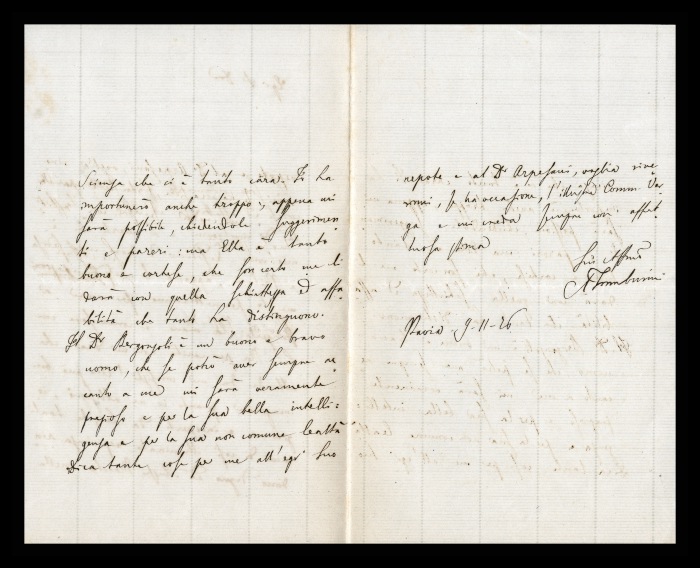 Scienza che ci è tanto cara. La
importunerò anche troppo, appena mi
sarà possibile, chiedendole suggerimen
ti e pareri: ma Ella è tanto
buono e cortese, che son certo me li
darà con quella schiettezza ed affa
bilità che tanto La distinguono.
Il Dr Bergonzoli è un buono e bravo
uomo, che se potrò aver sempre ac
canto a me mi sarà veramente
prezioso e per la sua bella intelli=
genza e per la sua non comune lealtà
Dica tante cose per me all'egr° suo
nepote e al Dr Arpesani, voglia rive
rirmi, se ha occasione, l'illustre Comm. Ver
ga e mi creda sempre con affet
tuosa stima
Suo Affmo
ATamburini
Pavia 9-11-76